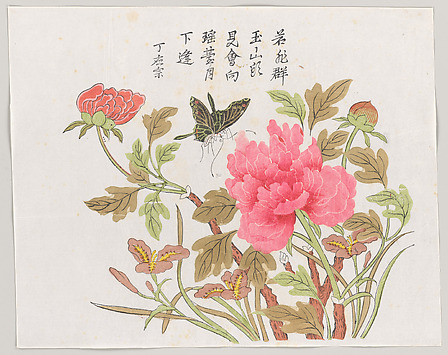 若非群
玉山頭
見會向
瑤臺月
下逢
丁应宗